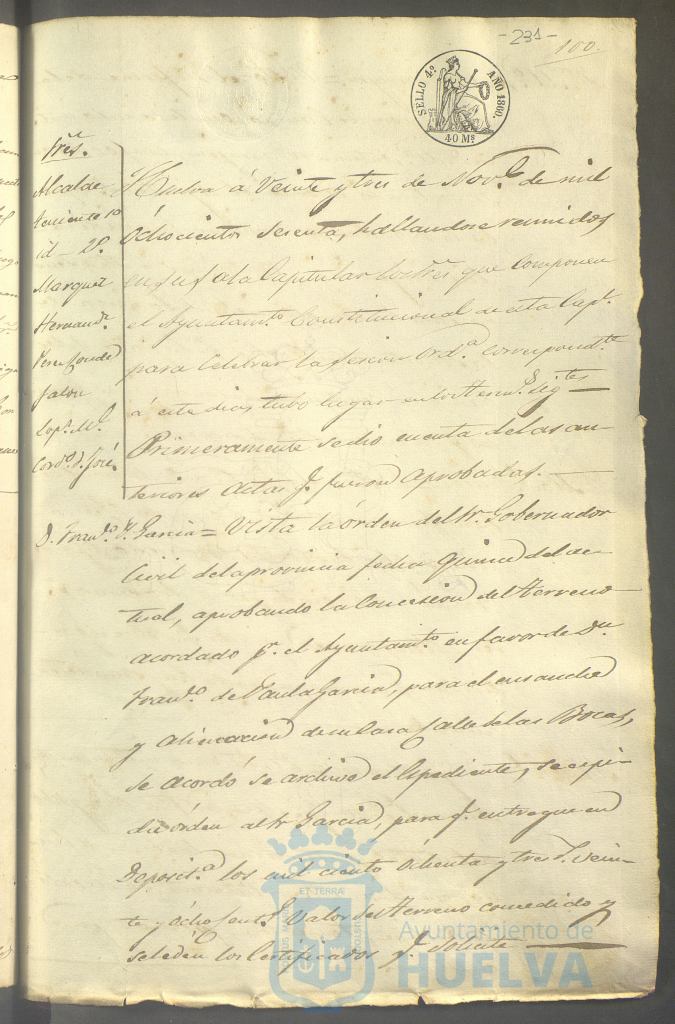 - 231 -
100.
SELLO 4º. AÑO 1860.
40 Ms.
Sres.
Alcalde
teniente 1º
id - 2º.
Marquez
Hernandz.
Perez
Jalon
Lopz. Ml.
Cordo. D. José.
Huelva á Veinte y tres de Nove. de mil
Ochocientos Sesenta, hallandose reunidos
en su Sala Capitular los Sres. que componen
el Ayuntamto. Constitucional de esta Capl.
para celebrar la sesion Orda. correspondte.
á este dia, tubo lugar en los term.s Sigtes. —
Primeramente se dió cuenta de las an-
teriores actas q. fueron aprobadas. —
D. Franco. P. Garcia = Vista la órden del Sr. Gobernador
Civil de la provincia fecha quince del ac-
tual, aprobando la Concesion del terreno
acordado pr. el Ayuntamto. en favor de Dn.
Franco. de Paula Garcia, para el ensanche
y alineacion de su Casa Calle de las Bocas,
se acordó se archive el Espediente, se espi-
da órden al Sr. Garcia, para q. entregue en
Deposita. los mil ciento ochenta y tres r. vein-
te y ócho cents. valor del terreno concedido y
se le den los Certificados q. solicite —
ET TERRÆ
Ayuntamiento de
HUELVA